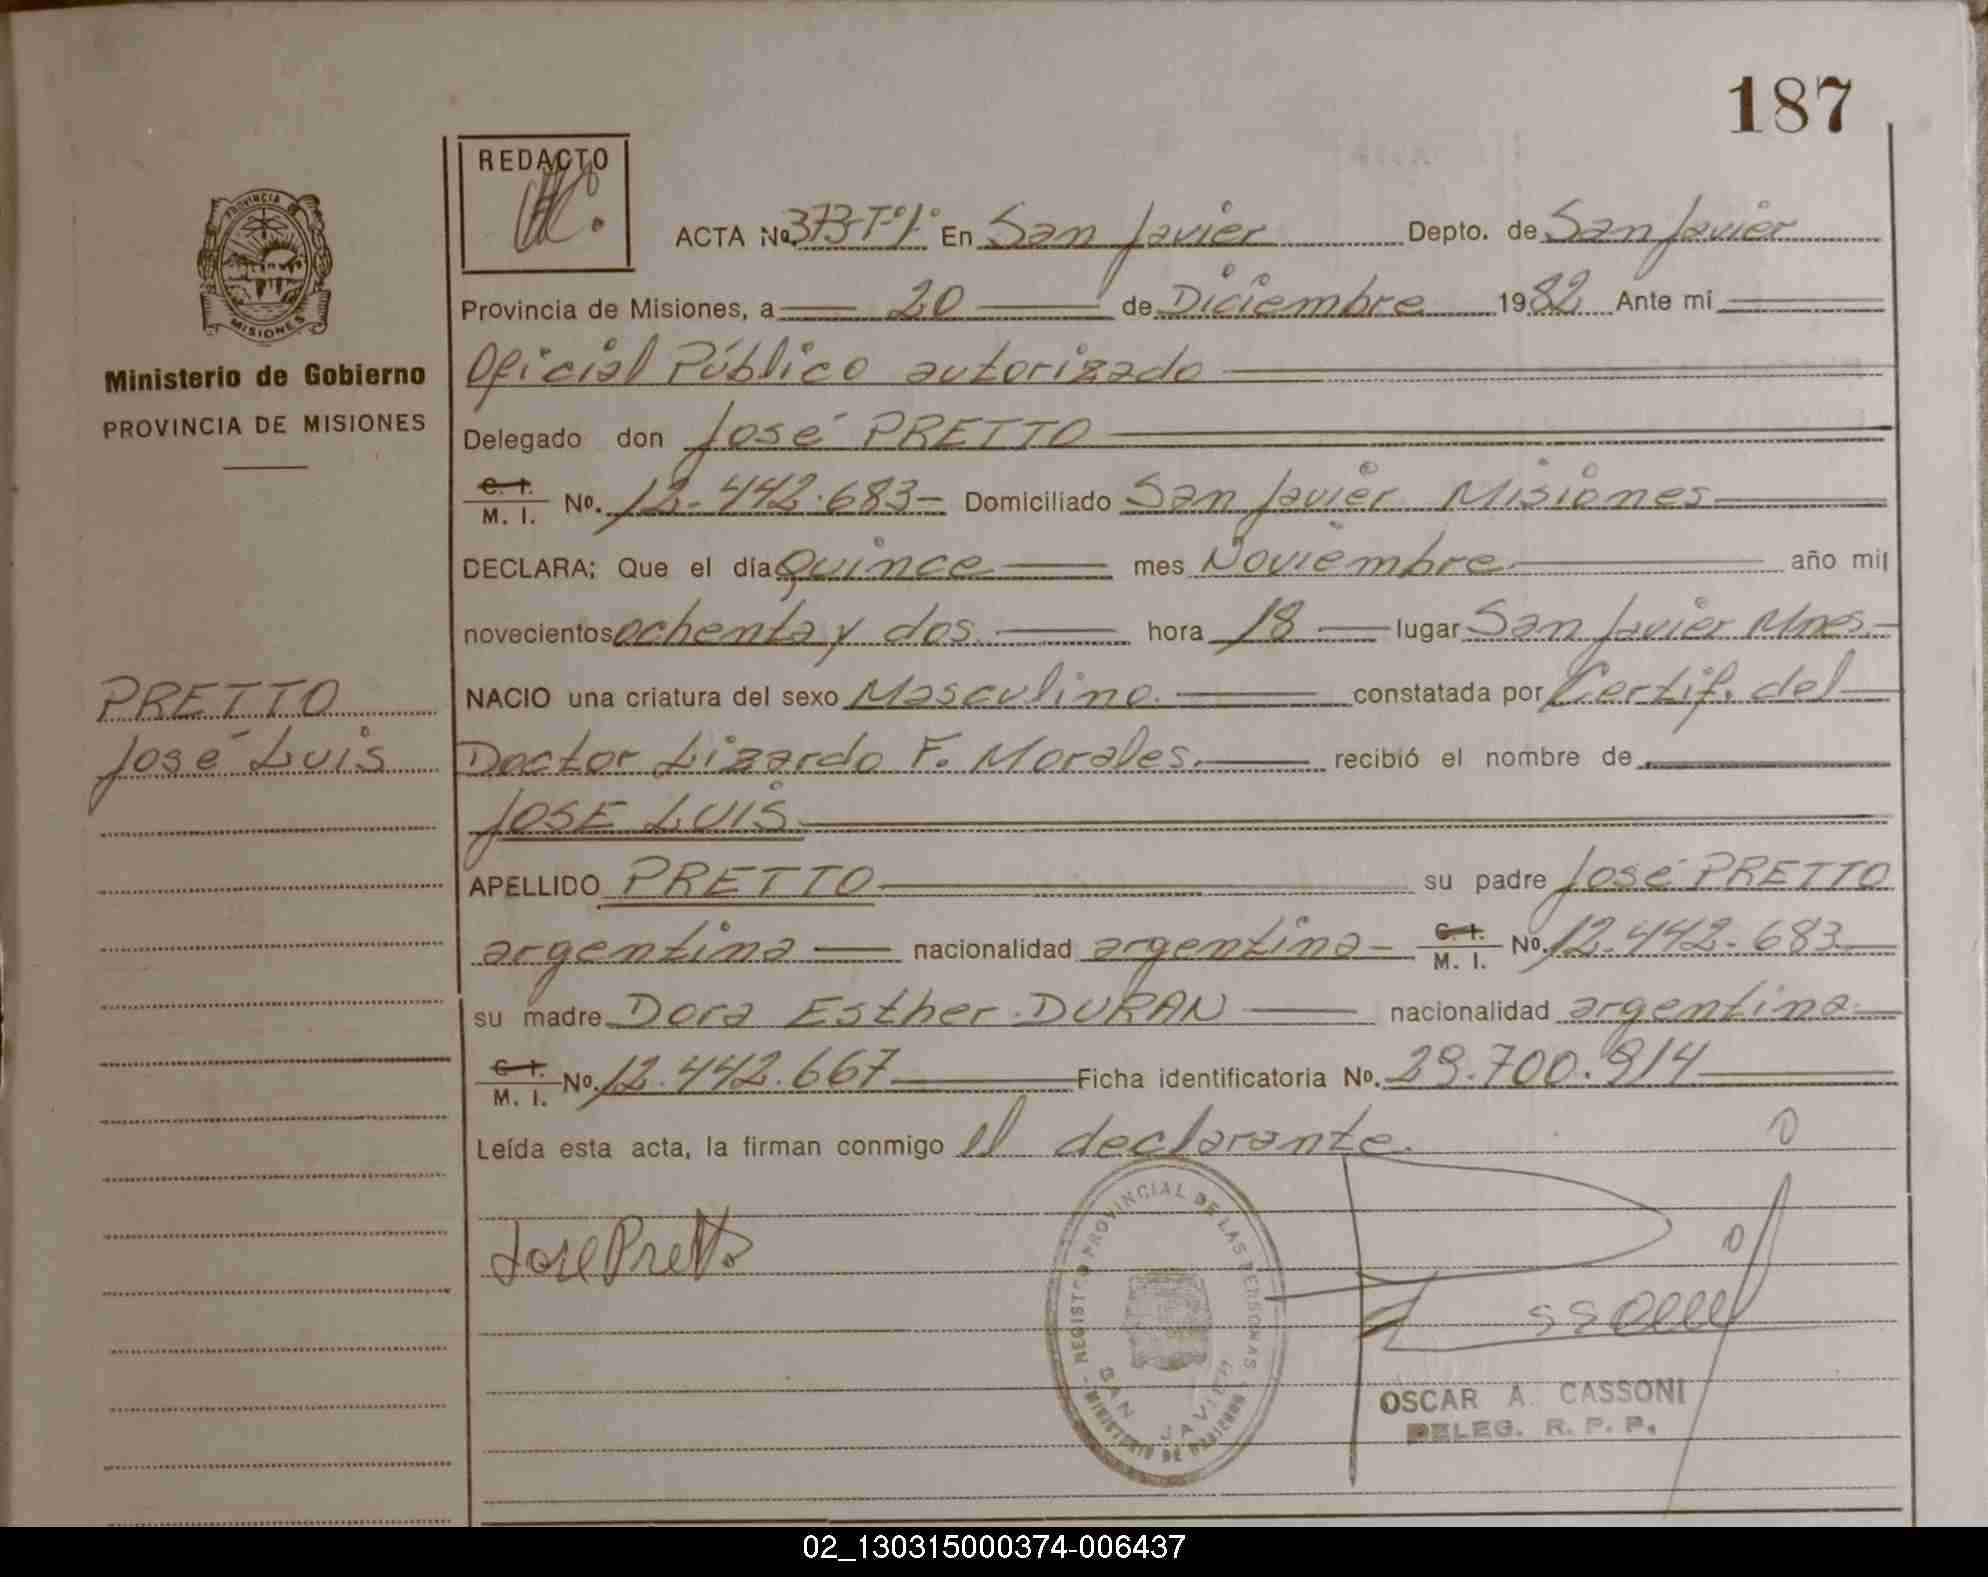 187
REDACTO
ACTA Nº 373-Tº1º En San Javier Depto. de San Javier
Provincia de Misiones, a 20 de Diciembre 1982 Ante mí
Oficial Público autorizado
Delegado don José PRETTO
C. I. M. I. Nº. 12.442.683 Domiciliado San Javier Misiones
DECLARA; Que el día Quince mes Noviembre año mil
novecientos ochenta y dos hora 18 lugar San Javier Mnes
NACIO una criatura del sexo Masculino. constatada por Certif. del
Doctor Lizardo F. Morales. recibió el nombre de
JOSE LUIS
APELLIDO PRETTO su padre José PRETTO
argentina nacionalidad argentina C. I. M. I. Nº. 12.442.683
su madre Dora Esther DURAN nacionalidad argentina
C. I. M. I. Nº. 12.442.667 Ficha identificatoria Nº. 29.700.914
Leída esta acta, la firman conmigo el declarante.
Jose Pretto
REGISTRO PROVINCIAL DE LAS PERSONAS
SAN JAVIER
MINISTERIO DE GOBIERNO
OSCAR A. CASSONI
DELEG. R. P. P.
PROVINCIA DE
MISIONES
Ministerio de Gobierno
PROVINCIA DE MISIONES
PRETTO
José Luis
02_130315000374-006437